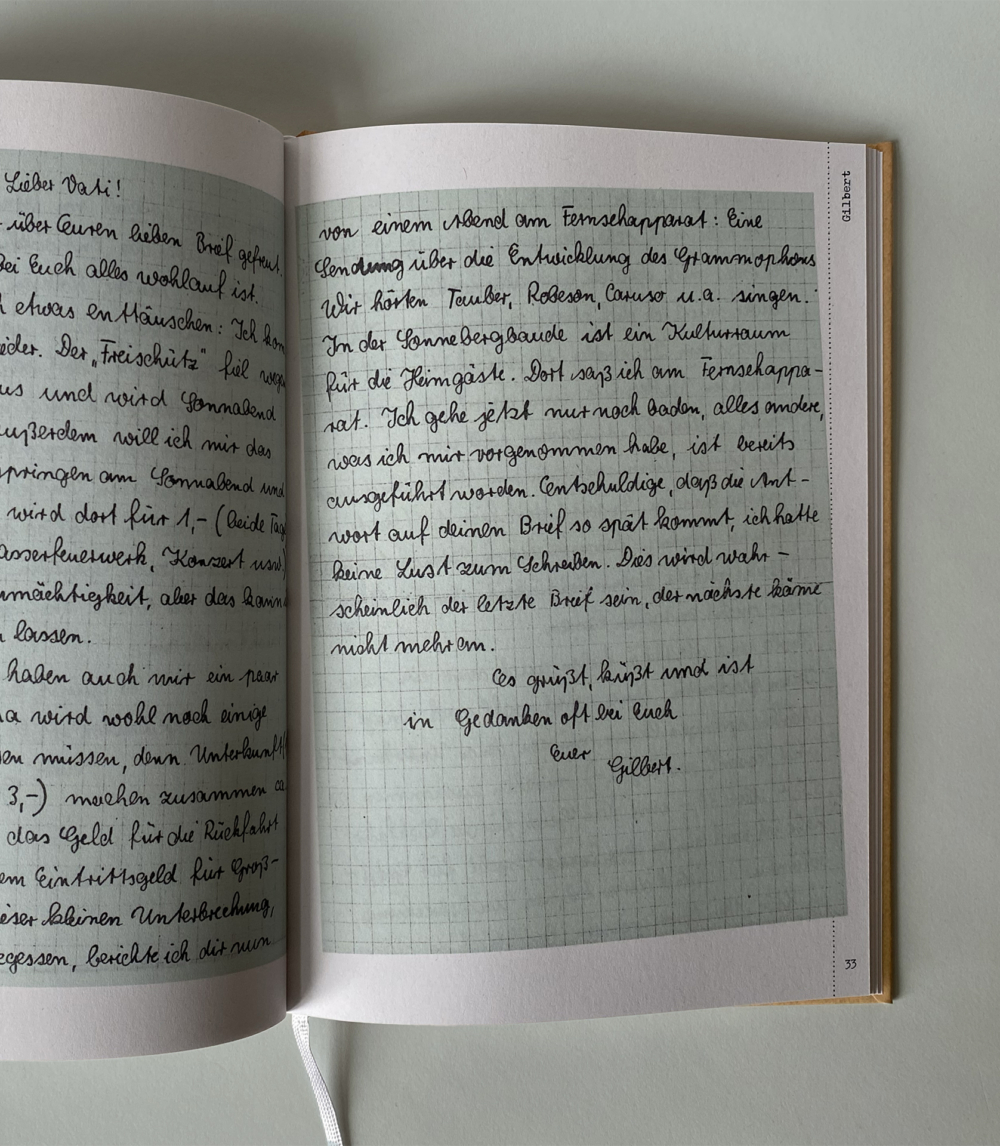 Lieber Vati!
über Euren lieben Brief gefreut.
bei Euch alles wohlauf ist.
etwas enttäuschen: Ich kom
ieder. Der „Freischütz" fiel wege
us und wird Sonnabend
außerdem will ich mir das
springen am Sonnabend und
wird dort für 1,- (beide Tag
asserfeuerwerk, Konzert usw)
nmächtigkeit, aber das kann
lassen.
haben auch mir ein paar
a wird wohl noch einige
en müssen, denn Unterkunft
3,-) machen zusammen ca
das Geld für die Rückfahrt
em Eintrittsgeld für Groß-
ieser kleinen Unterbrechung,
egessen, berichte ich dir nun
von einem Abend am Fernsehapparat: Eine
Sendung über die Entwicklung des Grammophons
Wir hörten Tauber, Robeson, Caruso u.a. singen.
In der Sonnebergbaude ist ein Kulturraum
für die Heimgäste. Dort saß ich am Fernsehappa-
rat. Ich gehe jetzt nur noch baden, alles andere,
was ich mir vorgenommen habe, ist bereits
ausgeführt worden. Entschuldige, daß die Ant-
wort auf deinen Brief so spät kommt, ich hatte
keine Lust zum Schreiben. Dies wird wahr-
scheinlich der letzte Brief sein, der nächste käme
nicht mehr an.
Es grüßt, küßt und ist
in Gedanken oft bei Euch
Euer
Gilbert.
Gilbert
33